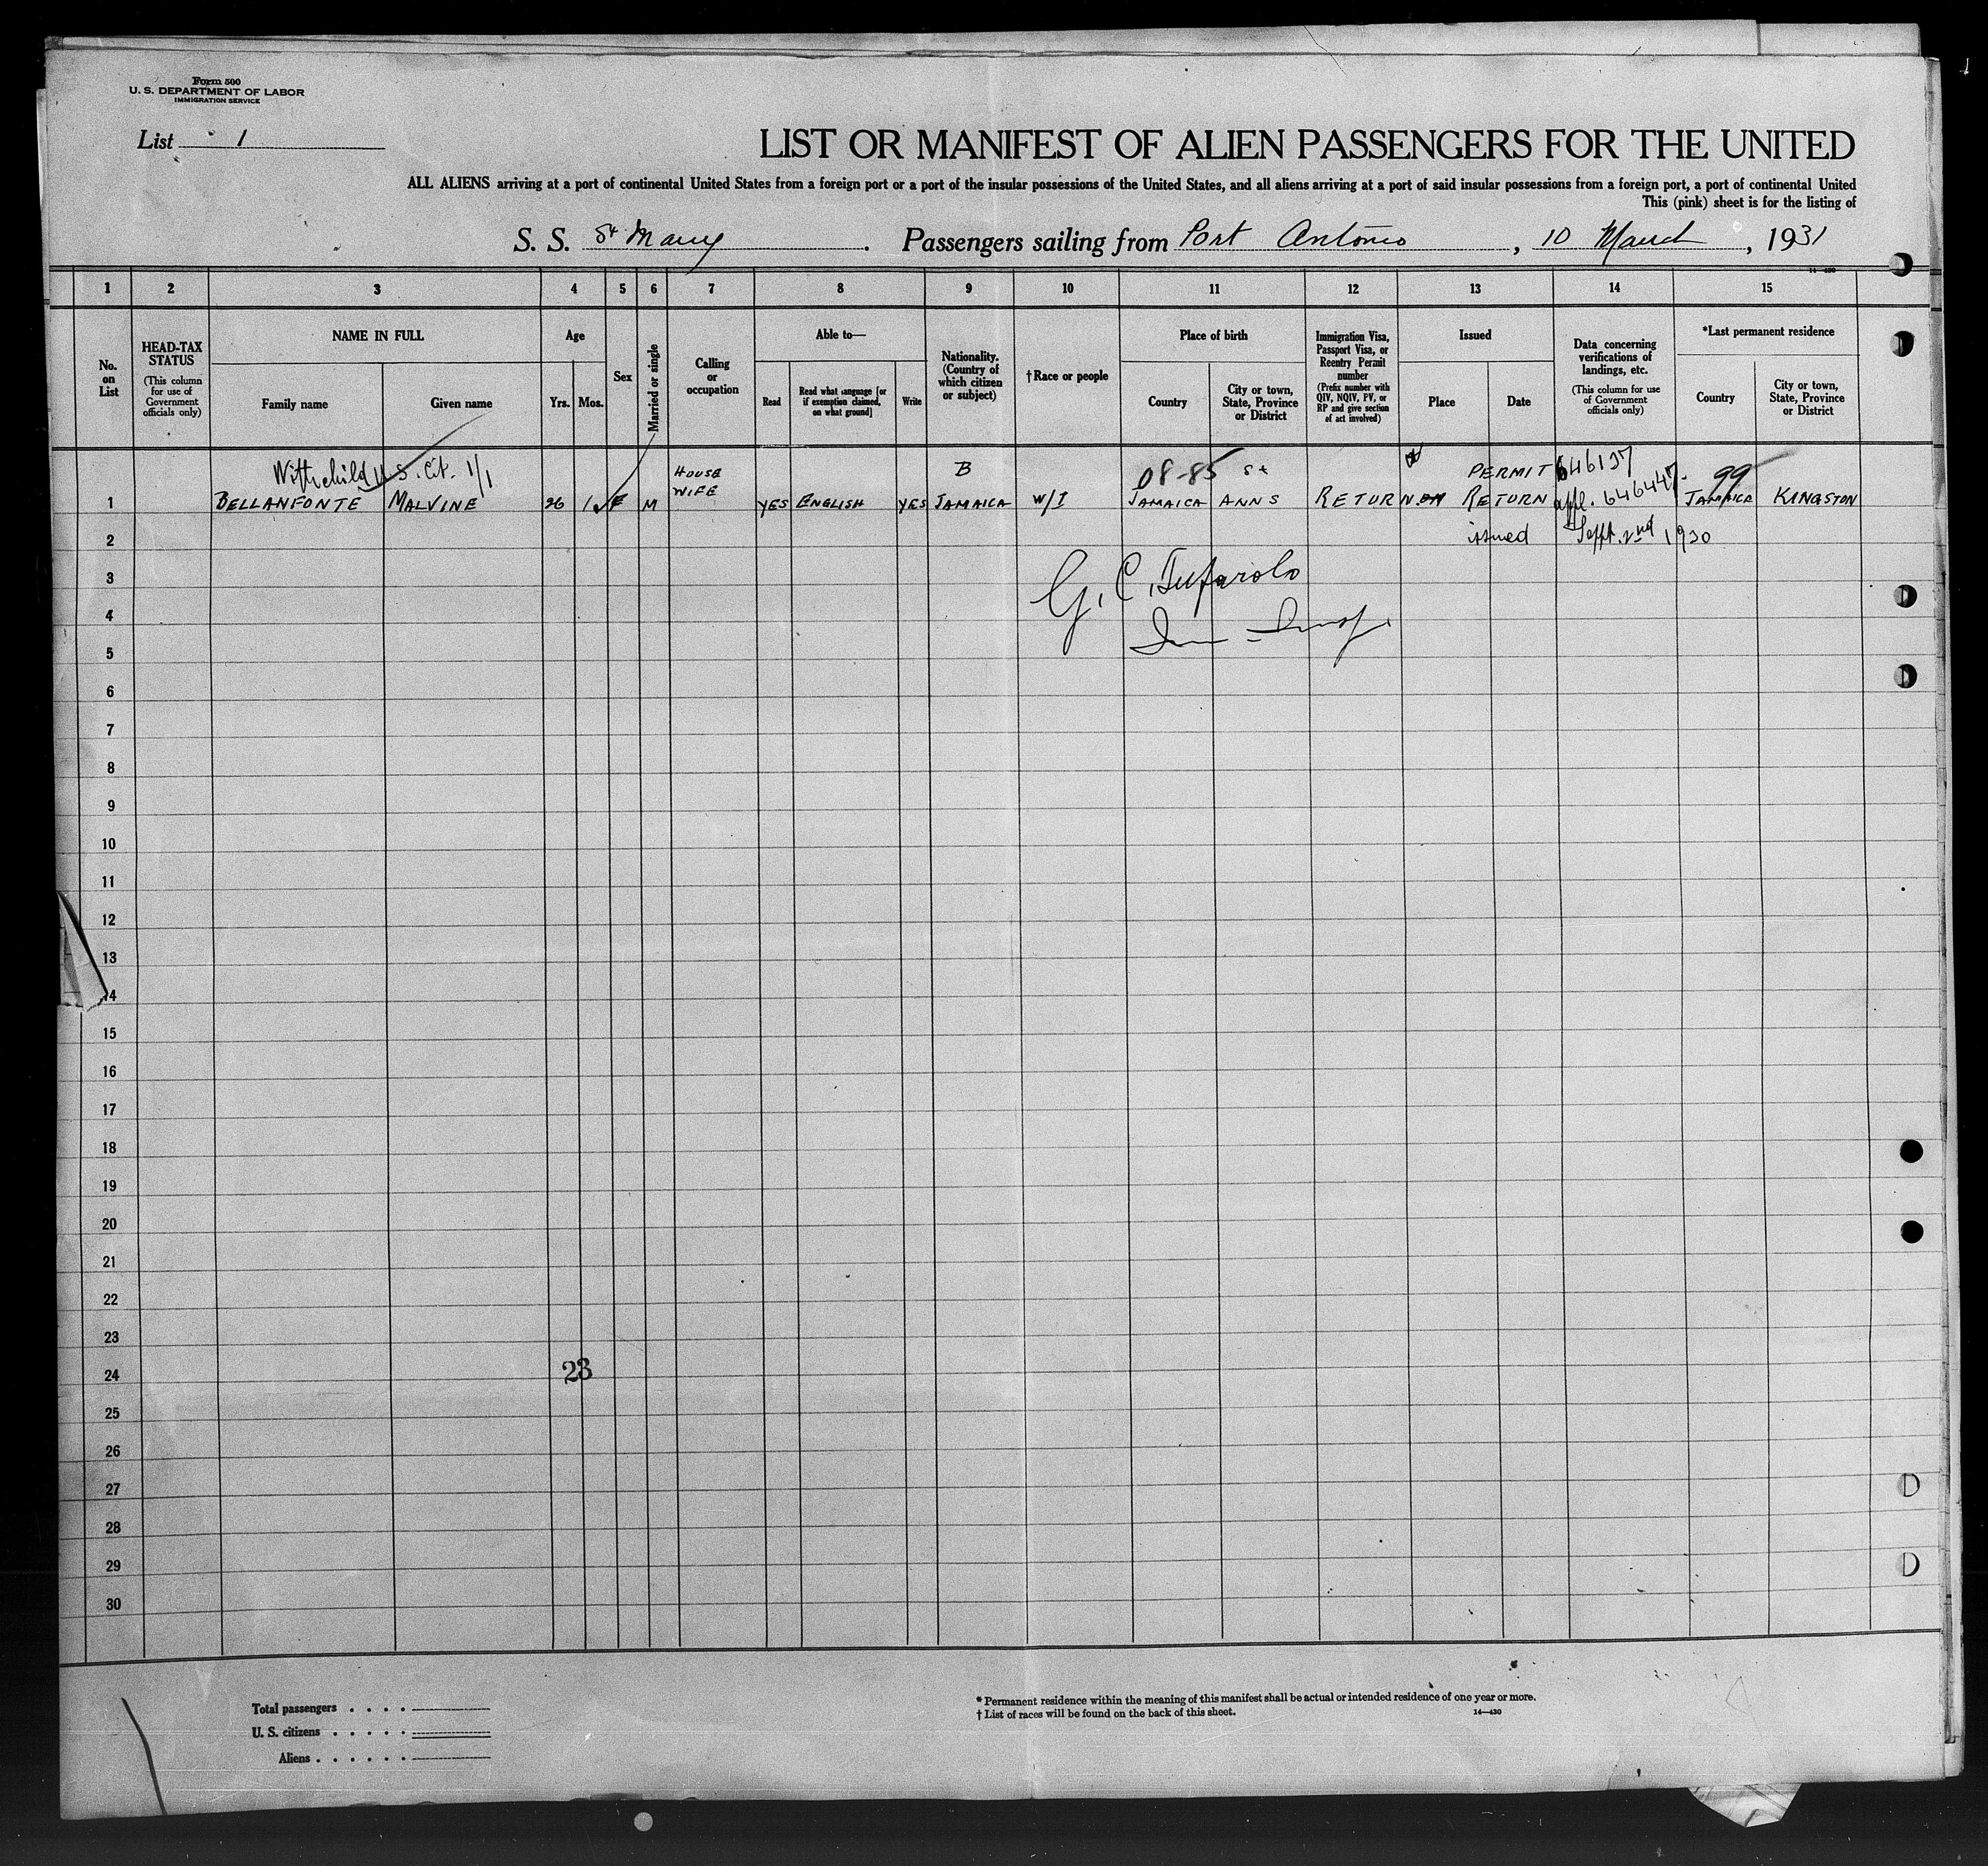 Form 500
U. S. DEPARTMENT OF LABOR
IMMIGRATION SERVICE
List 1
LIST OR MANIFEST OF ALIEN PASSENGERS FOR THE UNITED
ALL ALIENS arriving at a port of continental United States from a foreign port or a port of the insular possessions of the United States, and all aliens arriving at a port of said insular possessions from a foreign port, a port of continental United
This (pink) sheet is for the listing of
S. S. St Mary. Passengers sailing from Port Antonio, 10 March, 1931
14—430
1 2 3 4 5 6 7 8 9 10 11 12 13 14 15
No. on List
HEAD-TAX STATUS (This column for use of Government officials only)
NAME IN FULL
Family name Given name
Age
Yrs. Mos.
Sex
Married or single
Calling or occupation
Able to—
Read
Read what language [or if exemption claimed, on what ground]
Write
Nationality. (Country of which citizen or subject)
†Race or people
Place of birth
Country
City or town, State, Province or District
Immigration Visa, Passport Visa, or Reentry Permit number (Prefix number with QIV, NQIV, PV, or RP and give section of act involved)
Issued
Place Date
Data concerning verifications of landings, etc. (This column for use of Government officials only)
*Last permanent residence
Country
City or town, State, Province or District
With child U.S. Cit. 1/1 HOUSE B 08-85 St PERMIT 646137 99
1 BELLANFONTE MALVINE 26 1 F M WIFE YES ENGLISH YES JAMAICA W/I JAMAICA ANNS RETURN RETURN appl. 646447 JAMAICA KINGSTON
2 issued Sept. 2nd 1930
3 G. C.
4
5
6
7
8
9
10
11
12
13
14
15
16
17
18
19
20
21
22
23
24 23
25
26
27
28
29
30
Total passengers . . . .
U. S. citizens . . . . .
Aliens . . . . . .
* Permanent residence within the meaning of this manifest shall be actual or intended residence of one year or more.
† List of races will be found on the back of this sheet.
14—430